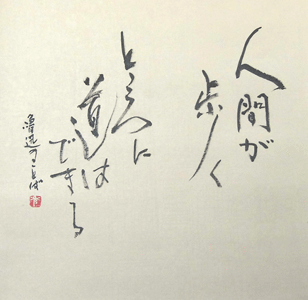 人間が
歩く
ところに
道は
できる
魯迅のことば